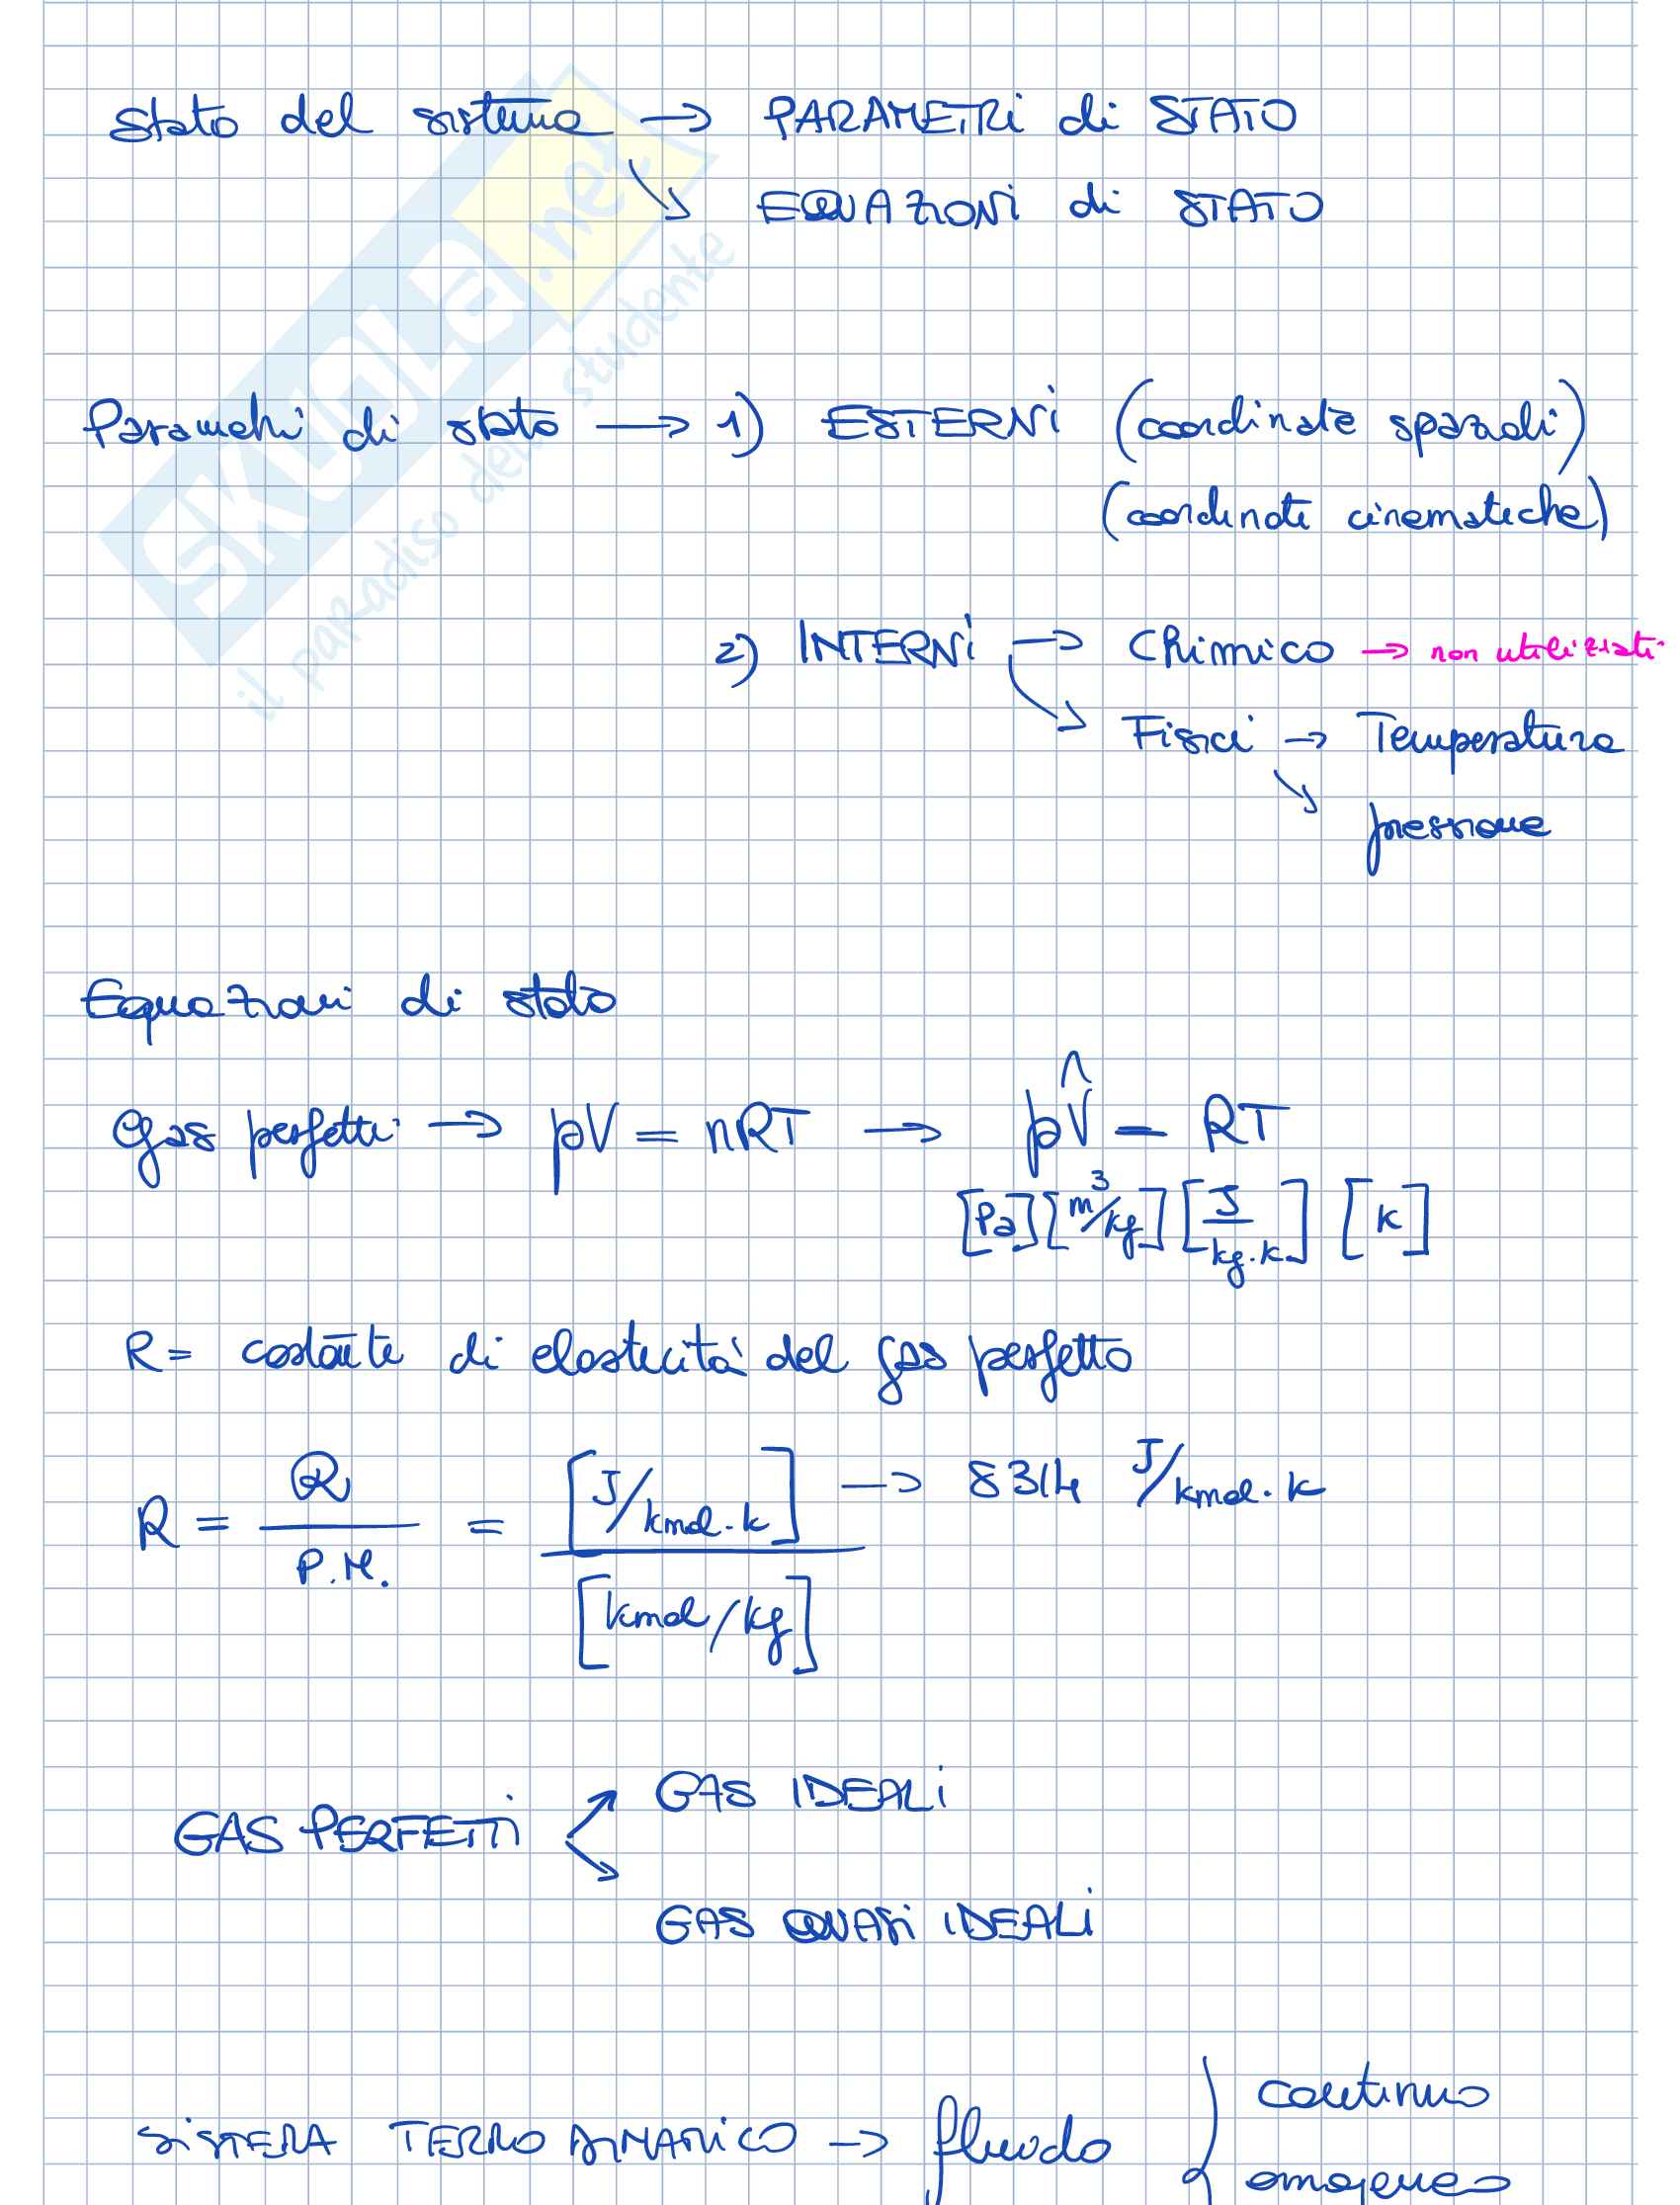 Stato del sistema → PARAMETRI di STATO
↘ EQUAZIONI di STATO
Parametri di stato → 1) ESTERNI (coordinate spaziali)
(coordinate cinematiche)
2) INTERNI → Chimico → non utilizzati
↘ Fisici → Temperatura
↘ pressione
Equazioni di stato
Gas perfetti → pV = nRT → pV̂ = RT
[Pa] [m³/kg] [J/kg·K] [K]
R = costante di elasticità del gas perfetto
R = R/P.M. = [J/kmol·K]/[kmol/kg] → 8314 J/kmol·K
GAS IDEALI
GAS PERFETTI
GAS QUASI IDEALI
SISTEMA TERMODINAMICO → fluido { continuo
omogeneo
SKUOLA.net
il paradiso dello studente